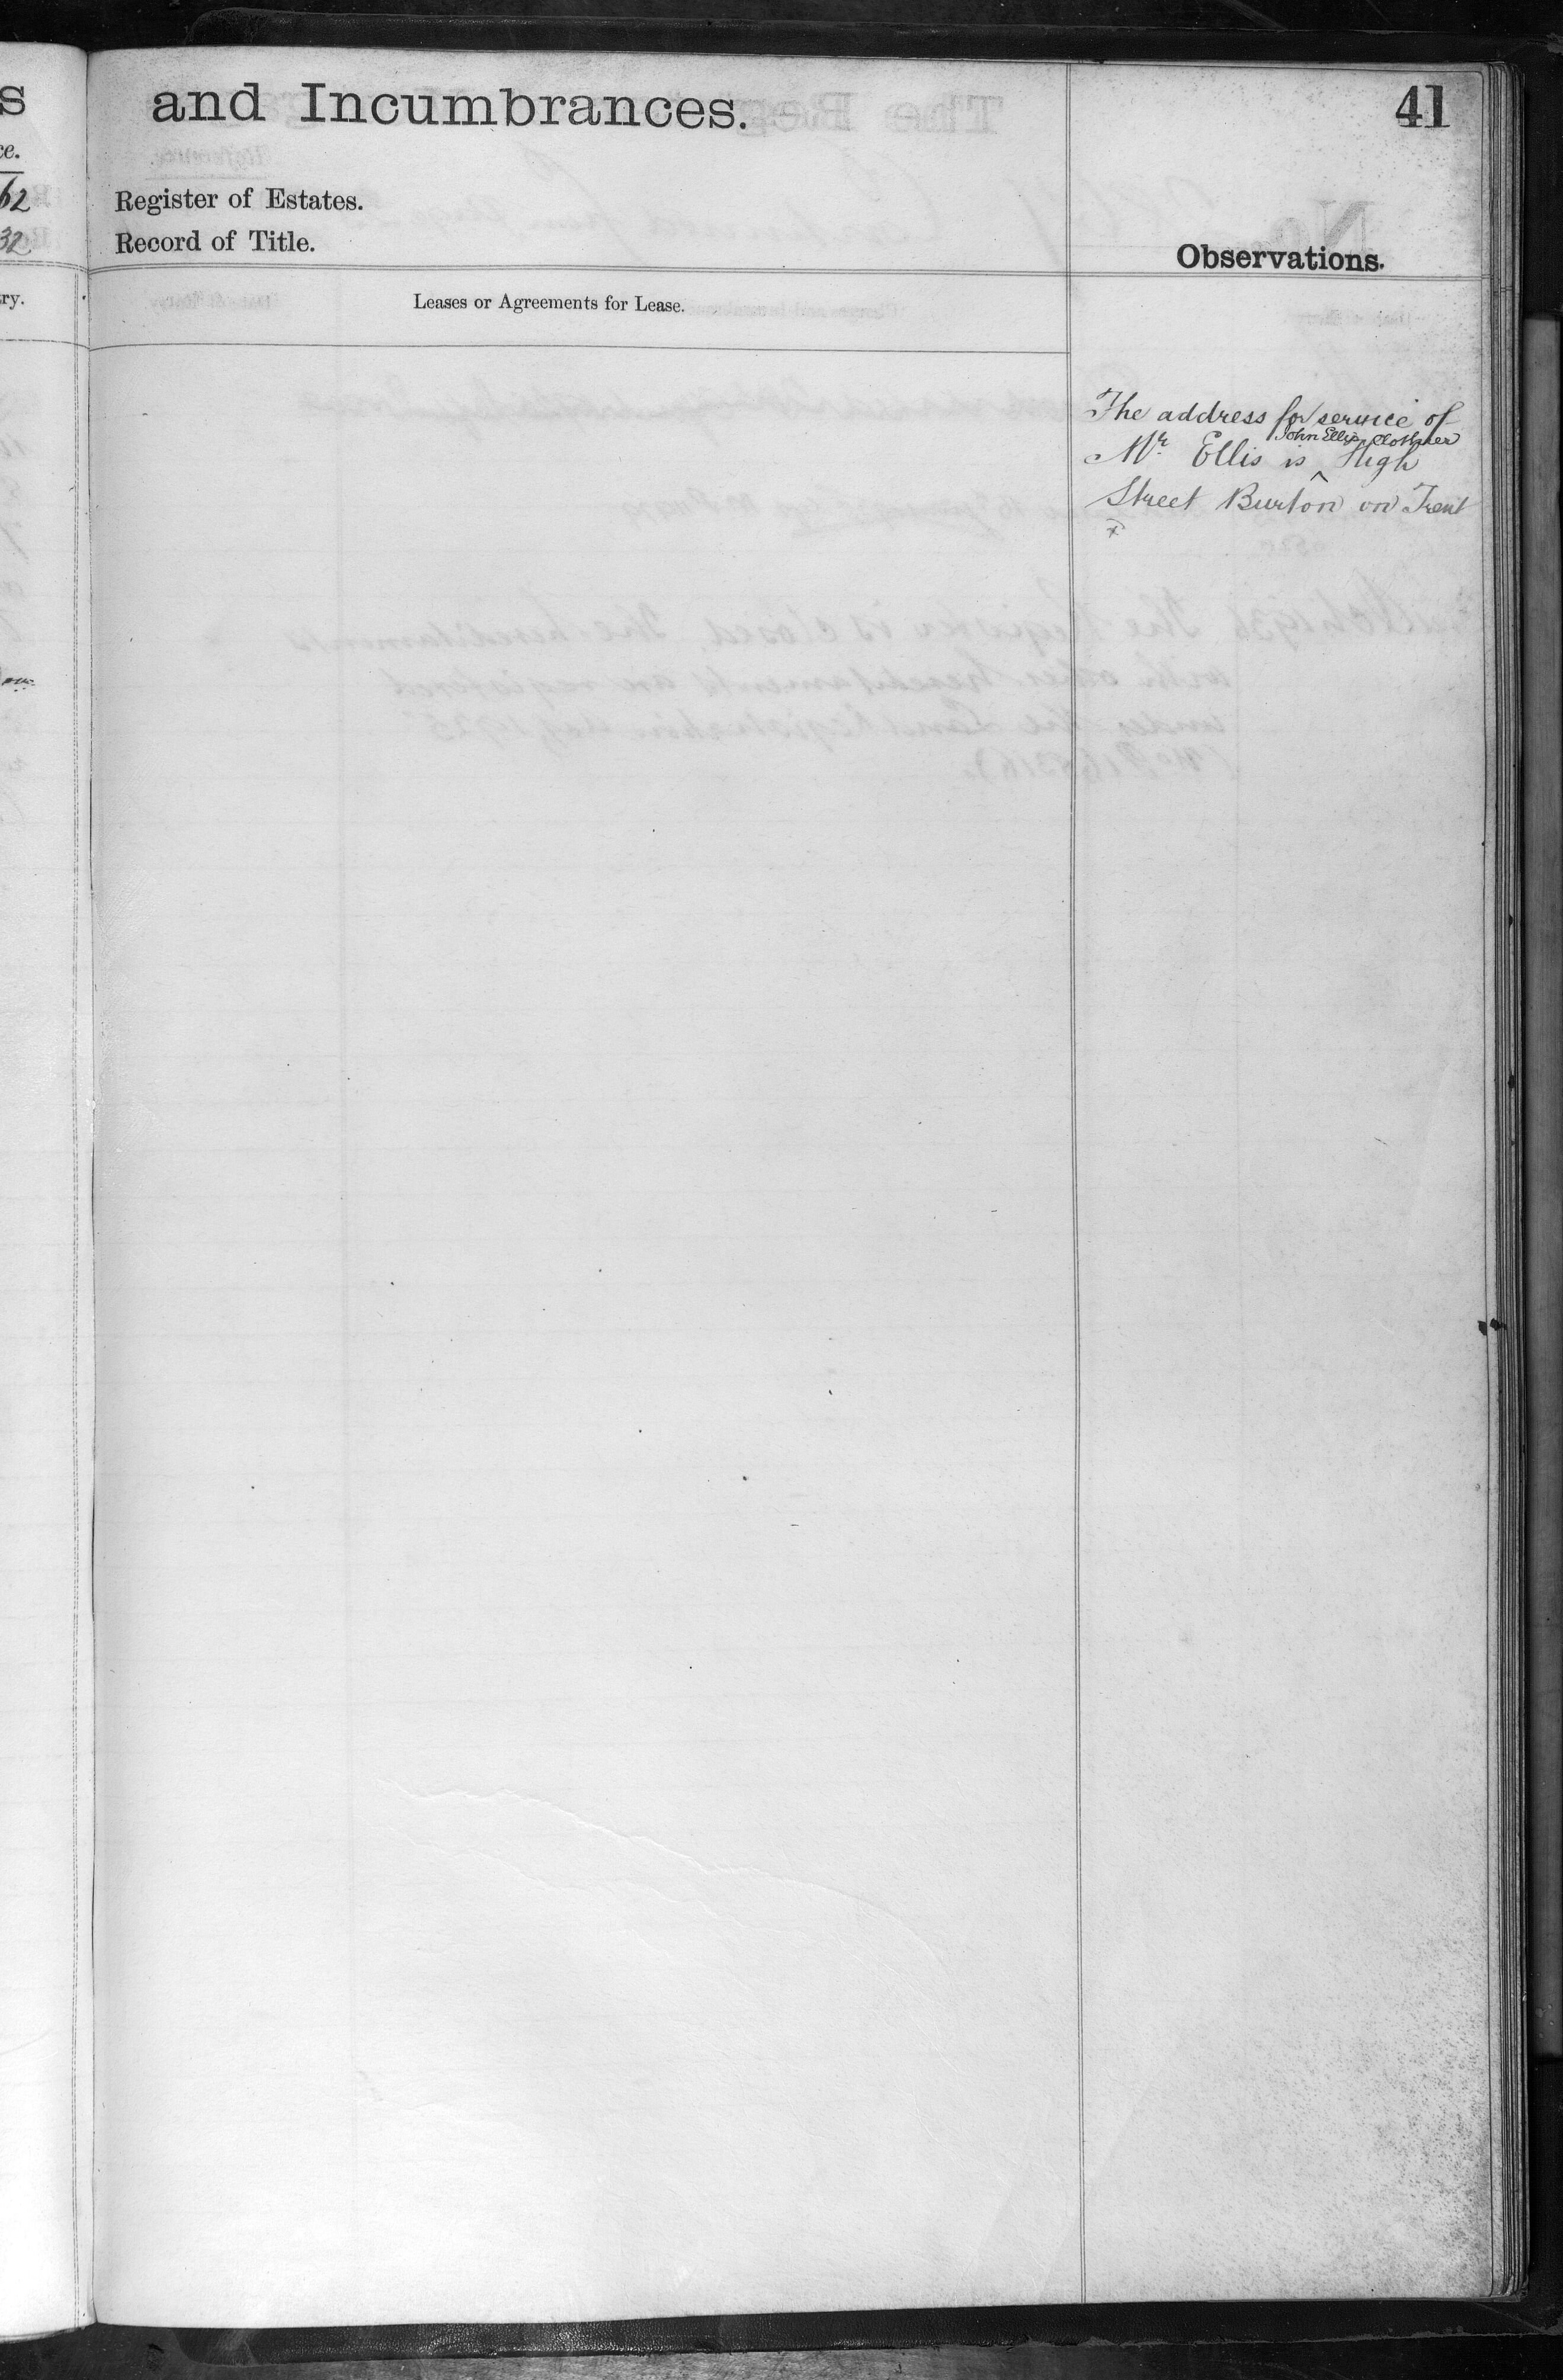 s
ce.
62
32
ry.
and Incumbrances.
41
Register of Estates.
Record of Title.
Observations.
Leases or Agreements for Lease.
The address for service of
John Ellis Clothier
Mr. Ellis is ^ High
Street Burton on Trent